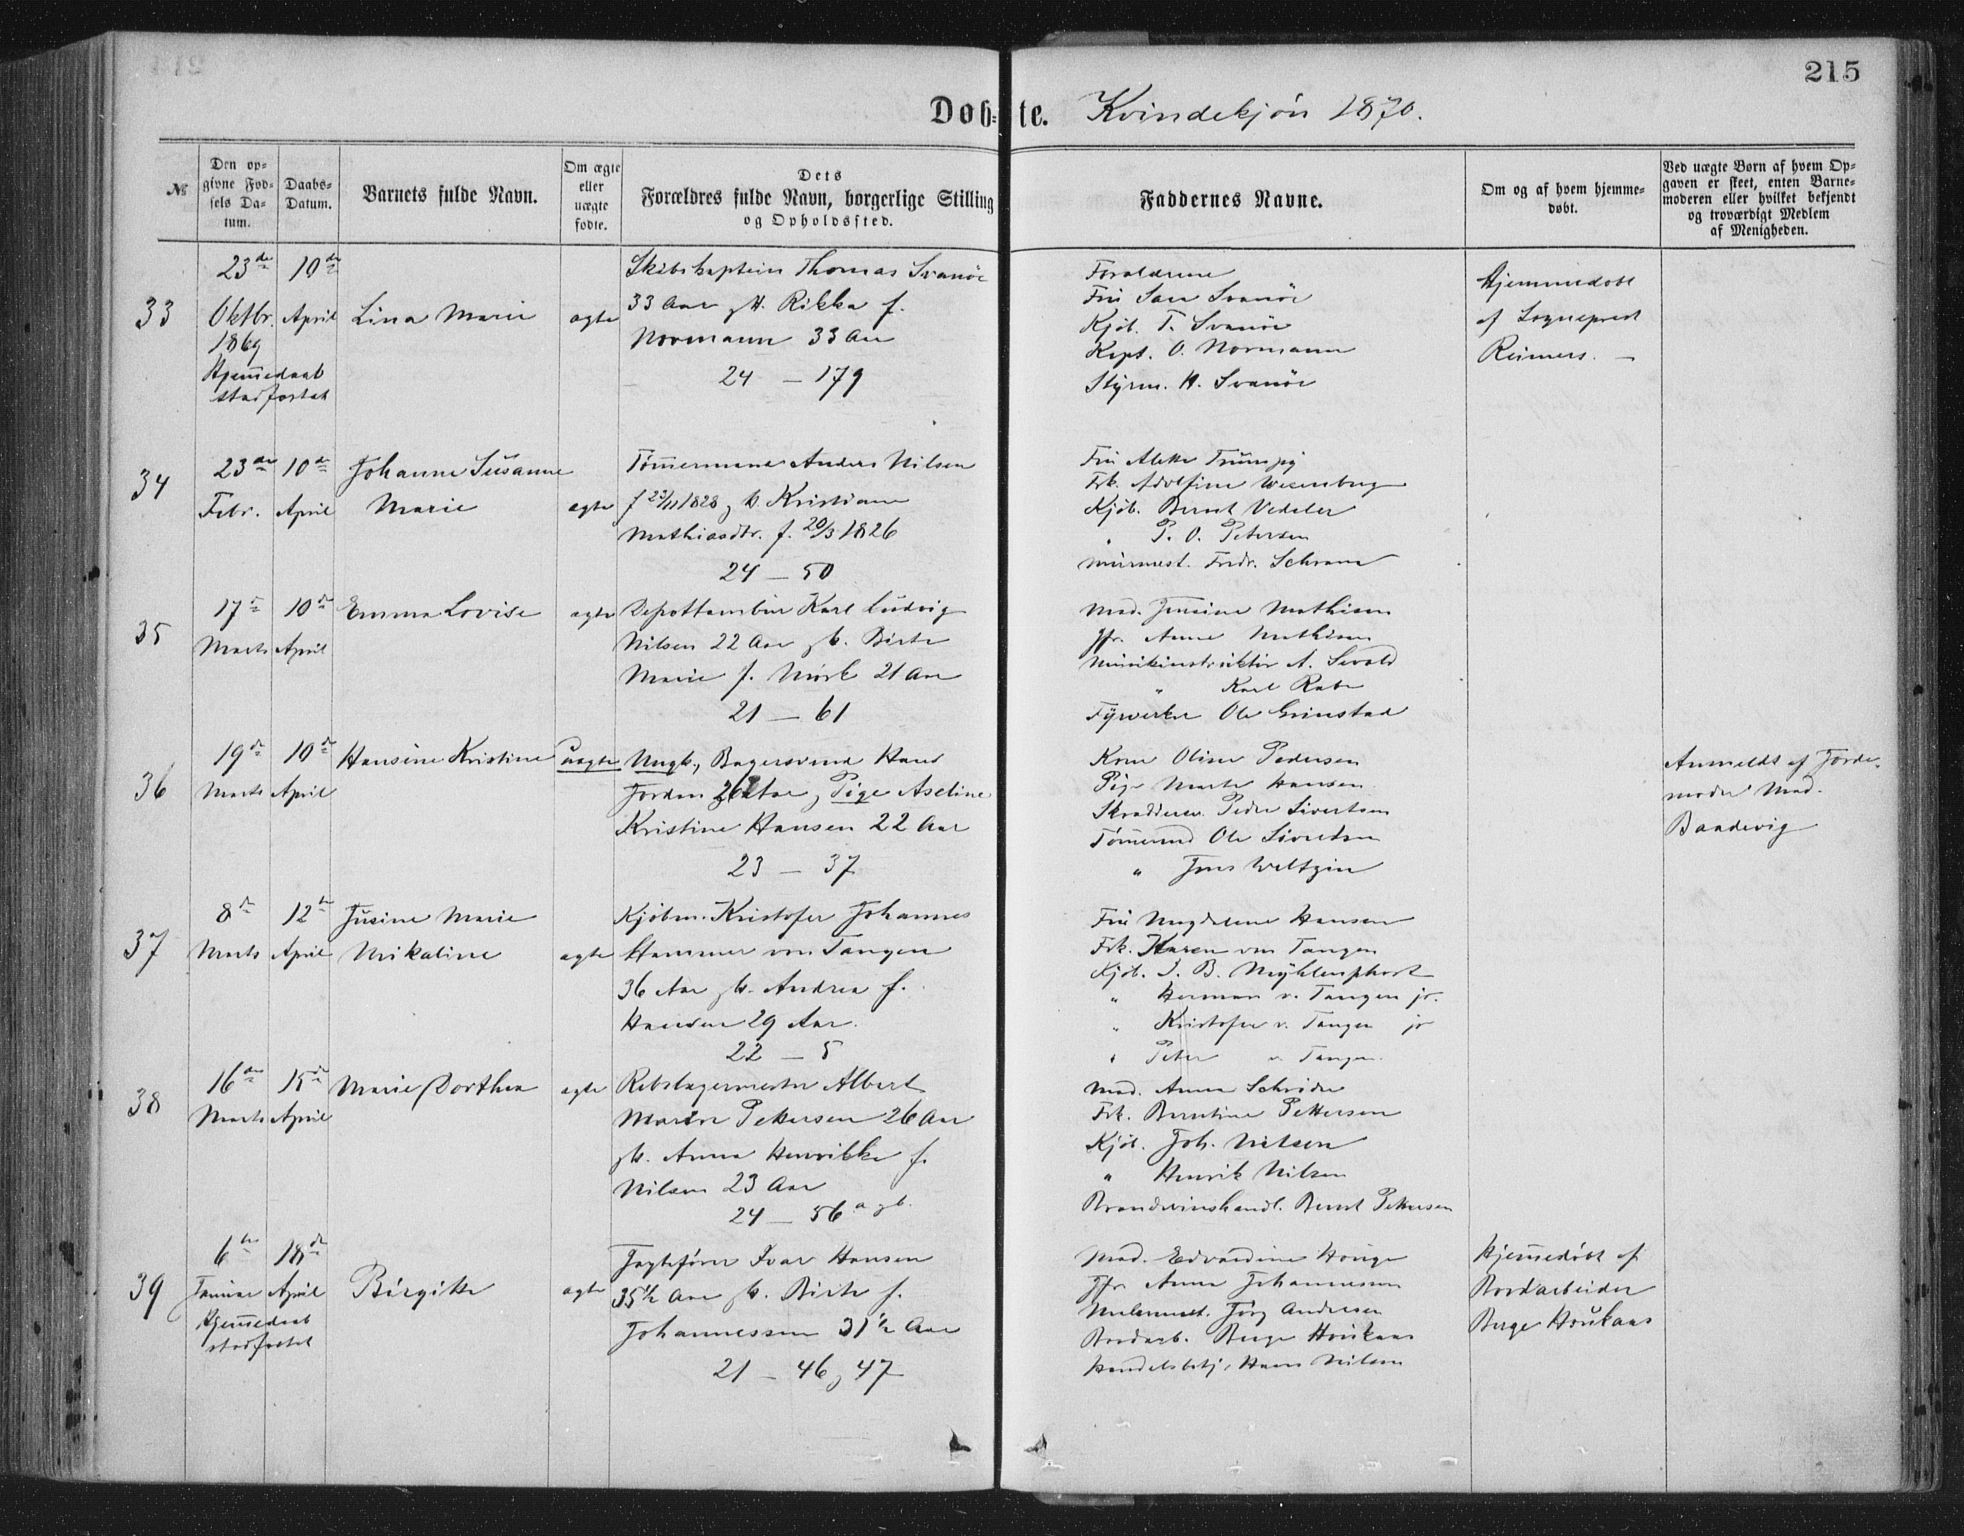 215
Døb-te. Kvindekjøn 1870.
№
Den op-
givne Fød-
sels Da-
tum.
Daabs-
Datum.
Barnets fulde Navn.
Om ægte
eller
uægte
fødte.
Dets
Forældres fulde Navn, borgerlige Stilling
og Opholdssted.
Faddernes Navne.
Om og af hvem hjemme-
døbt.
Ved uægte Børn af hvem Op-
gaven er skeet, enten Barne-
moderen eller hvilket bekjendt
og troværdigt Medlem
af Menigheden.
33
23de
Oktbr.
1869
Hjemmedaab
stadfæstet
10de
April
Lina Marie
ægte
Skibskaptein Thomas Svanöe
33 Aar H. Rikka f.
Normann 33 Aar
24 - 179
Forældrene
Fru Sara Svanöe
Kjöb. T. Svanöe
Kapt. O. Normann
Styrm. H. Svanöe
Hjemmedöbt
af Sogneprest
Reimers. -
34
23de
Febr.
10de
April
Johanne Susanne
Marie
ægte
Tömmermand Anders Nilsen
f 1828 Kristiane
Mathiasdtr. f. 20/3 1826
24 - 50
Fru Alette
Frk. Adolfine Wesenberg
Kjöb. Bernt Vedeler
" P. O. Petersen
Murmest. Fredr. Schram
35
17de
Marts
10de
April
Emma Lovise
ægte
Depottambur Karl Ludvig
Nilsen 22 Aar Birte
Marie f. Mörk 21 Aar
21 - 61
Mad. Jensine Mathisen
Jfr. Anne Mathisen
Musikinstruktör A. Sevald
" Karl Rabe
Fyrverker Ole Grimstad
36
19de
Marts
10de
April
Hansine Kristine
uægte
Ungk., Bagersvend Hans
Jordan 26 Aar, Pige Aseline
Kristine Hansen 22 Aar
23 - 37
Kone Oline Pedersen
Pige Marte Hansen
Skræddersv. Peder Sivertsen
Tömmermd Ole Sivertsen
" Jens Weltzin
Anmeldt af Jorde-
moder Mad.
Baadevig
37
8de
Marts
12te
April
Jusine Marie
Mikaline
ægte
Kjöbm. Kristofer Johannes
Hammer von Tangen
36 Aar H. Andrea f.
Hansen 29 Aar.
22 - 5
Fru Magdalene Hansen
Frk. Karen von Tangen
Kjöb. J. B. Myhlenphort
" Herman v. Tangen jr.
" Kristofer v. Tangen jr
" Peter v. Tangen.
38
16de
Marts
15de
April
Marie Dorthea
ægte
Rebslagermester Albert
Pettersen 26 Aar
H. Anna Henrikke f.
Nilsen 23 Aar
24 - 56 a
Mad. Anna Schröder
Frk. Berntine Pettersen
Kjöb. Joh. Nielsen
" Henrik Nilsen
Brændevinshandl. Bernt Pettersen
39
6te
Januar
Hjemmedaab
stadfæstet
18de
April
Birgitte
ægte
Jagtefører Ivar Hansen
35½ Aar H. Birte f.
Johannessen 31½ Aar
21 - 46, 47
Mad. Edvardine Houge
Jfr. Anna Johannessen
Malermest. Jörg Andersen
Bordarb. Berge Houkaas
Handelsbetj. Hans Nilsen
Hjemmedöbt af
Bordarbeider
Berge Houkaas